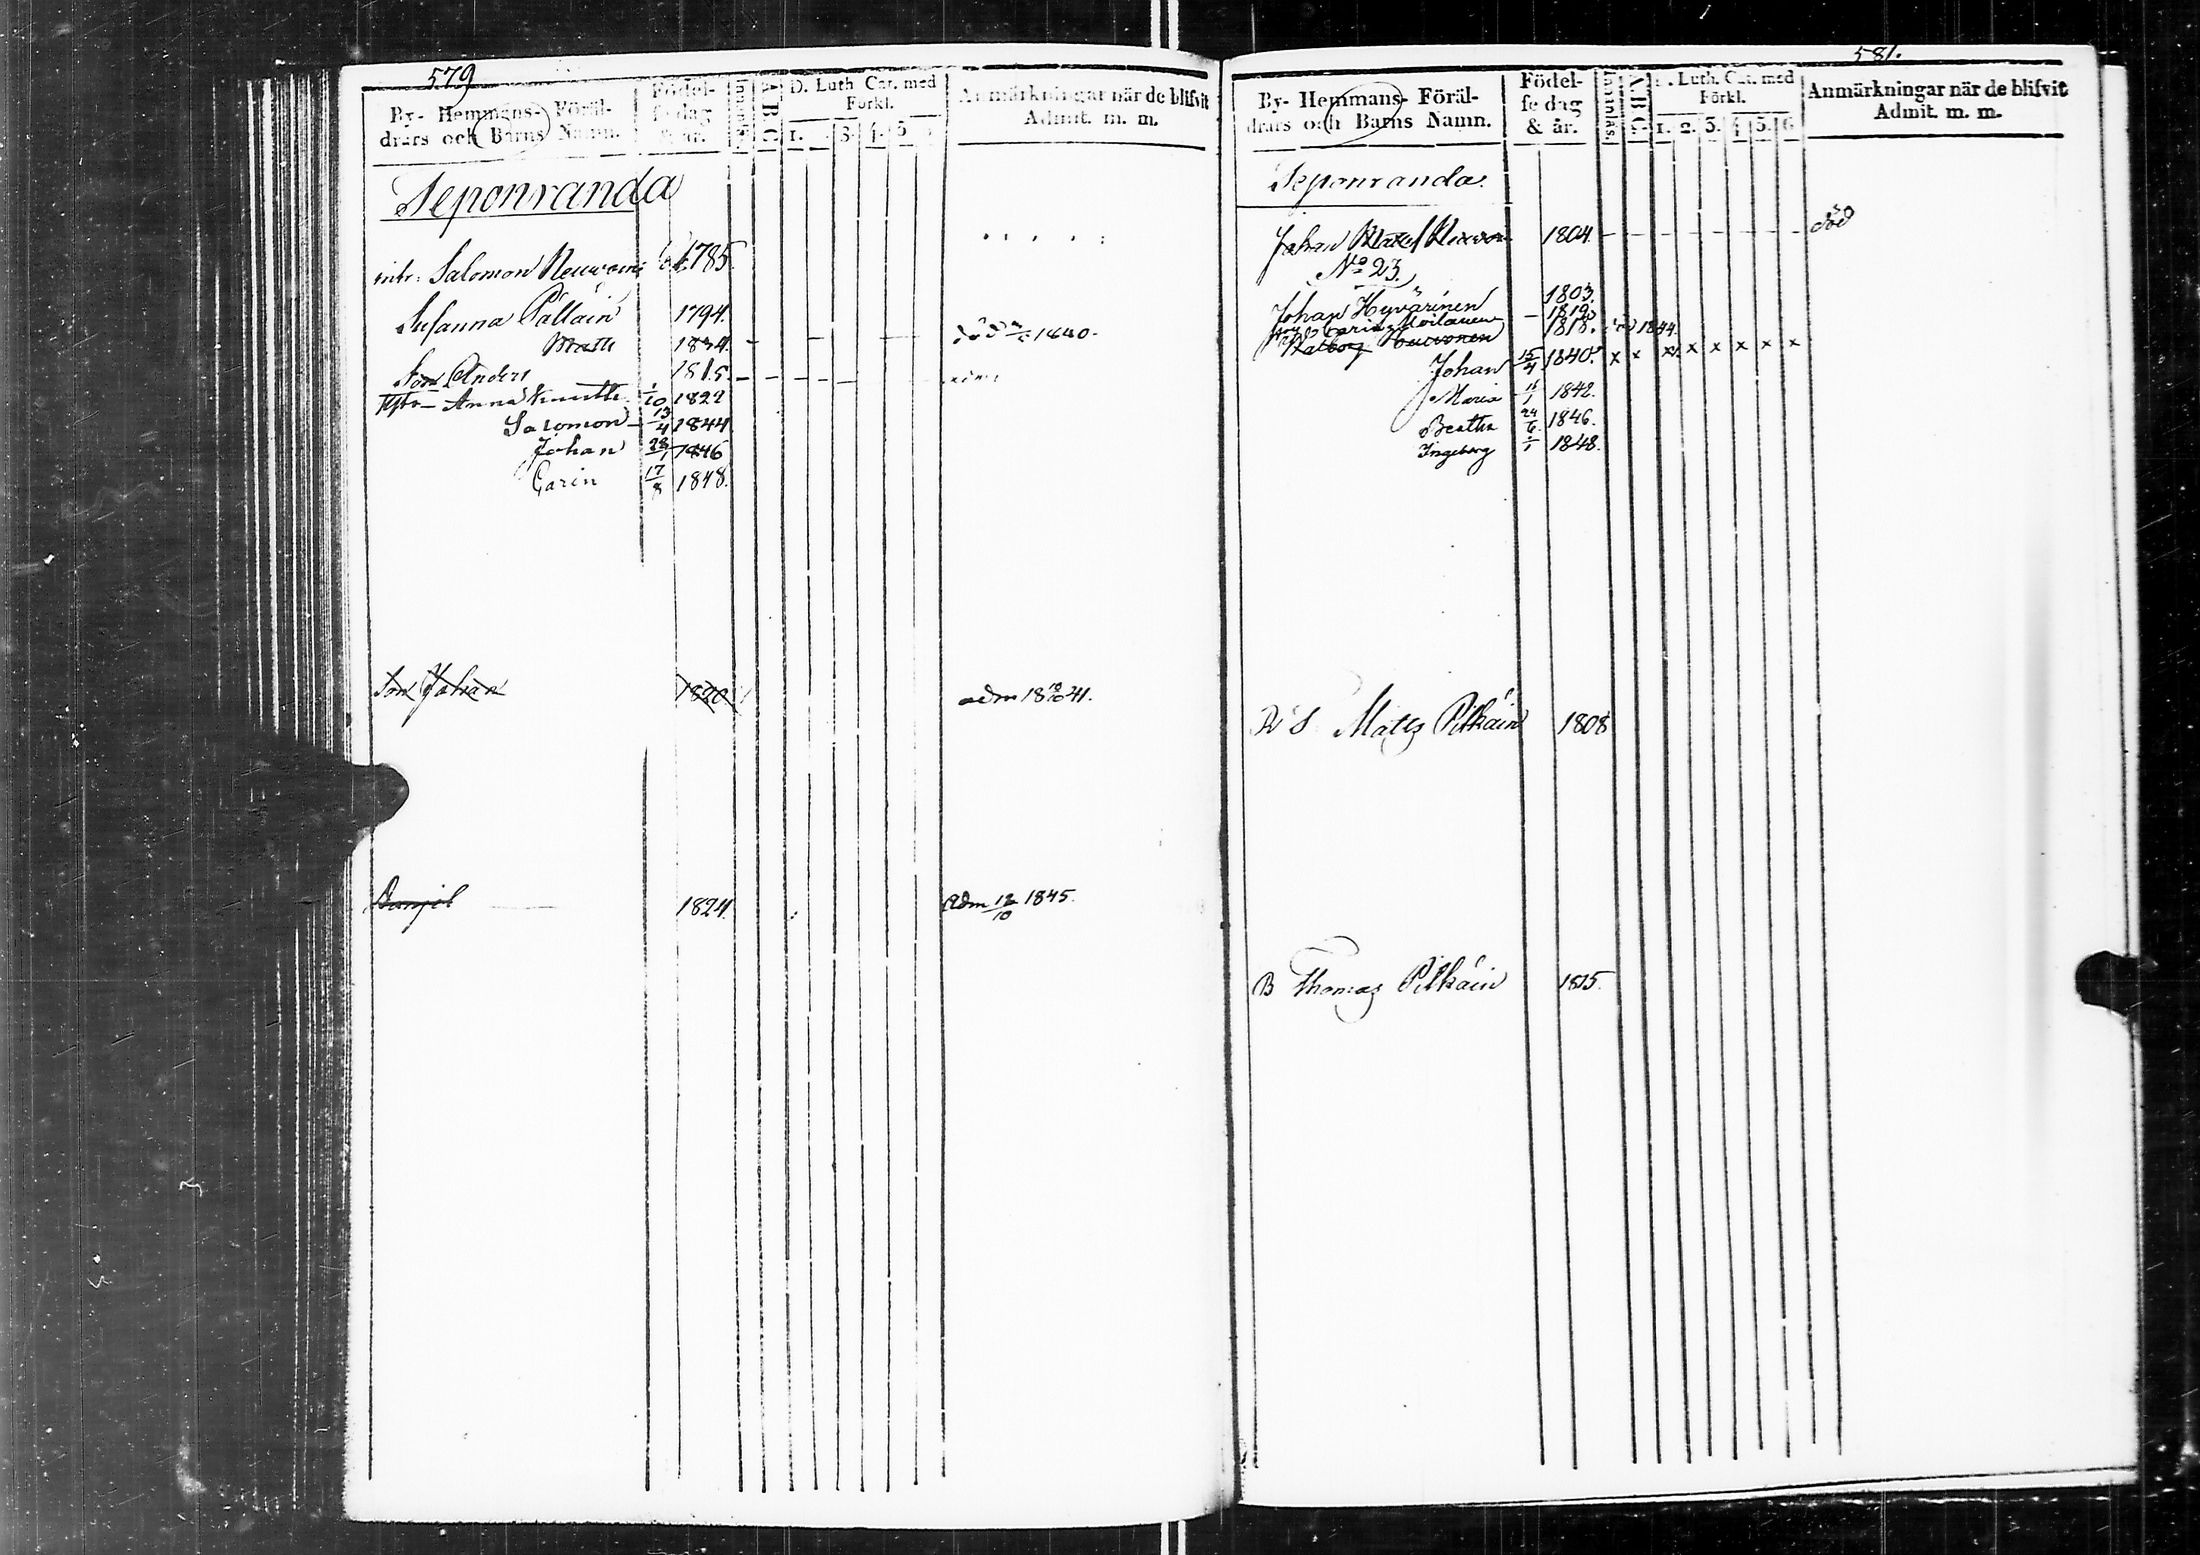 579
By- Hemmans- Föräl-
drars och Barns Namn.
Födel-
se dag
& år.
A. B. C.
D. Luth. Cat. med
Förkl.
1. 3. 4. 5
Anmärkningar när de blifvit
Admit. m. m.
Seponranda
Salomon 1785.
Susanna Pälläin 1794.
1834. död 1840.
Son Anders 1815.
Anna 1/10 1822
Salomon 13/4 1844
Johan 28/1 1846
Carin 17/8 1848.
Son Johan 1820. adm 18 19/10 41.
Daniel 1824. Adm 12/10 1845.
581.
By- Hemmans- Föräl-
drars och Barns Namn.
Födel-
se dag
& år.
Innanläs.
A. B. C.
D. Luth. Cat. med
Förkl.
1. 2. 3. 4 5. 6
Anmärkningar när de blifvit
Admit. m. m.
Seponranda.
Johan 1804. död
No 23.
Johan Hyvärinen 1803.
Carin Moilanen 1819. död 1844.
Walborg 1818.
Johan 15/4 1840. x x x x x x x x
Maria 1842.
Beatha 24/6 1846.
Ingeborg 1848.
Matts Pitkäin 1808
B Thomas Pitkäin 1815.